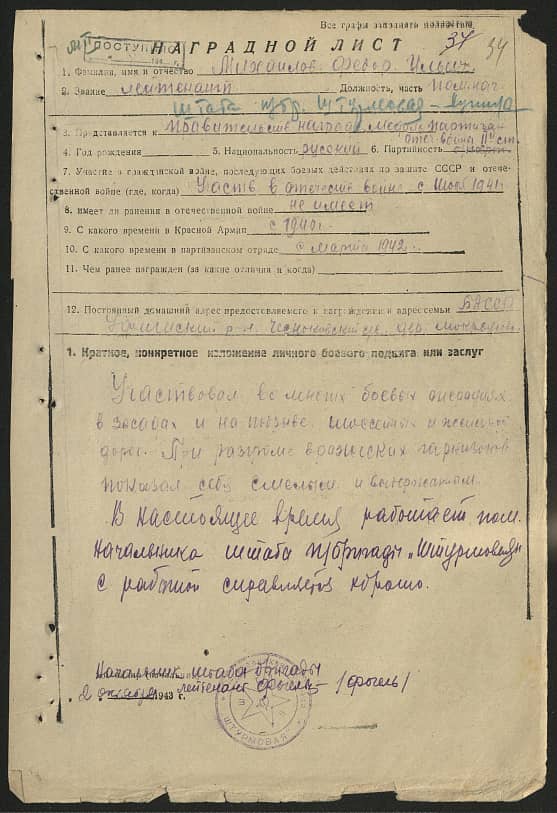 Все графы заполнять полностью
ПОСТУПИЛО
НАГРАДНОЙ ЛИСТ
37 34
1. Фамилия, имя и отчество Михайлов Федор Ильич
2. Звание лейтенант Должность, часть пом. нач.
штаба п/бр. Штурмовая
3. Представляется к правительств. награде медаль партизан
отеч. войны II ст.
4. Год рождения 5. Национальность русский 6. Партийность
7. Участие в гражданской войне, последующих боевых действиях по защите СССР и отече-
ственной войне (где, когда) Участв. в отечеств. войне с июля 1941
8. имеет ли ранения в отечественной войне не имеет
9. С какого времени в Красной Армии с 1940 г.
10. С какого времени в партизанском отряде с марта 1942 г.
11. Чем ранее награжден (за какие отличия и когда)
12. Постоянный домашний адрес предоставляемого к награждению и адрес семьи БАССР
Уфимский р-н, Чесноковский с/с, дер.
1. Краткое, конкретное изложение личного боевого подвига или заслуг
Участвовал во многих боевых операциях
в засадах и на подрыве шоссейных и железной
дорог. При разгроме вражеских гарнизонов
показал себя смелым и выдержанным.
В настоящее время работает пом.
начальника штаба п/бригады „Штурмовая"
с работой справляется хорошо.
Начальник штаба бригады
2 октября 1943 г. лейтенант Фогель /Фогель/
ШТУРМОВАЯ